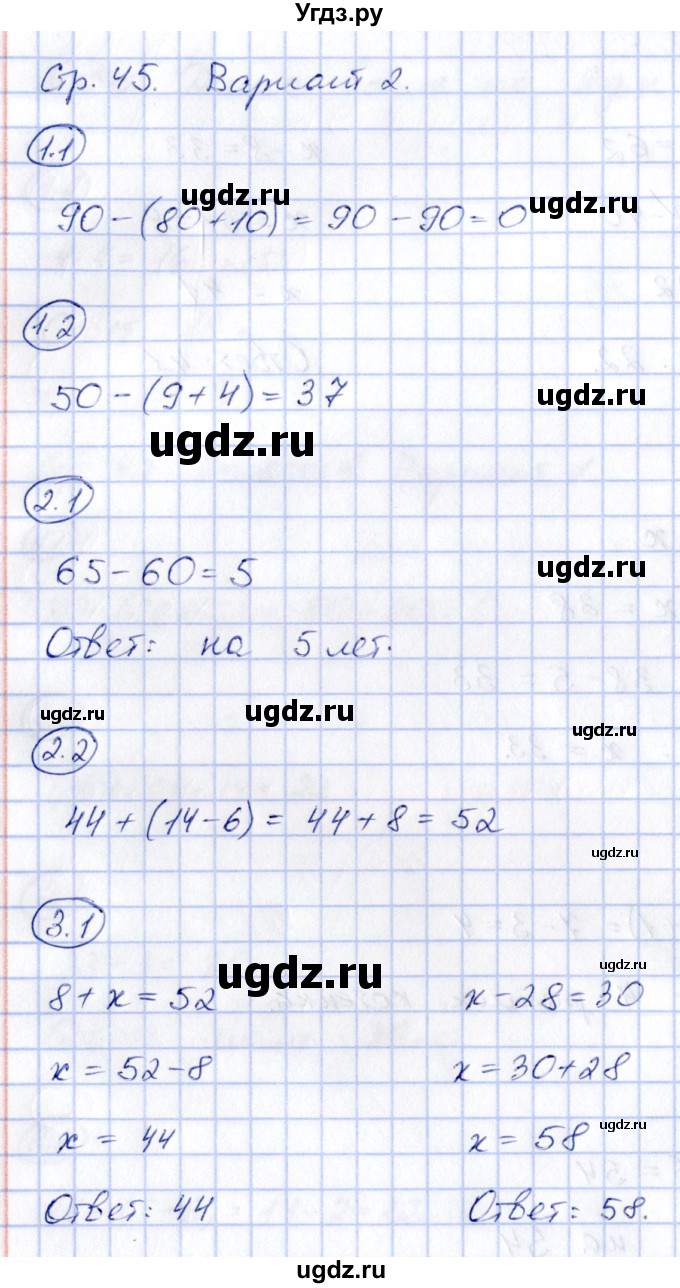 Угдз.ру
Стр. 45. Вариант 2.
1.1
ugdz.ru
90 - (80 + 10) = 90 - 90 = 0
ugdz.ru
1.2
50 - (9 + 4) = 37
ugdz.ru
ugdz.ru
2.1
65 - 60 = 5
ugdz.ru
Ответ: на 5 лет.
ugdz.ru
ugdz.ru
ugdz.ru
2.2
44 + (14 - 6) = 44 + 8 = 52
ugdz.ru
3.1
ugdz.ru
ugdz.ru
8 + x = 52 x - 28 = 30
x = 52 - 8 x = 30 + 28
ugdz.ru
x = 44 x = 58
Ответ: 44 Ответ: 58.
ugdz.ru